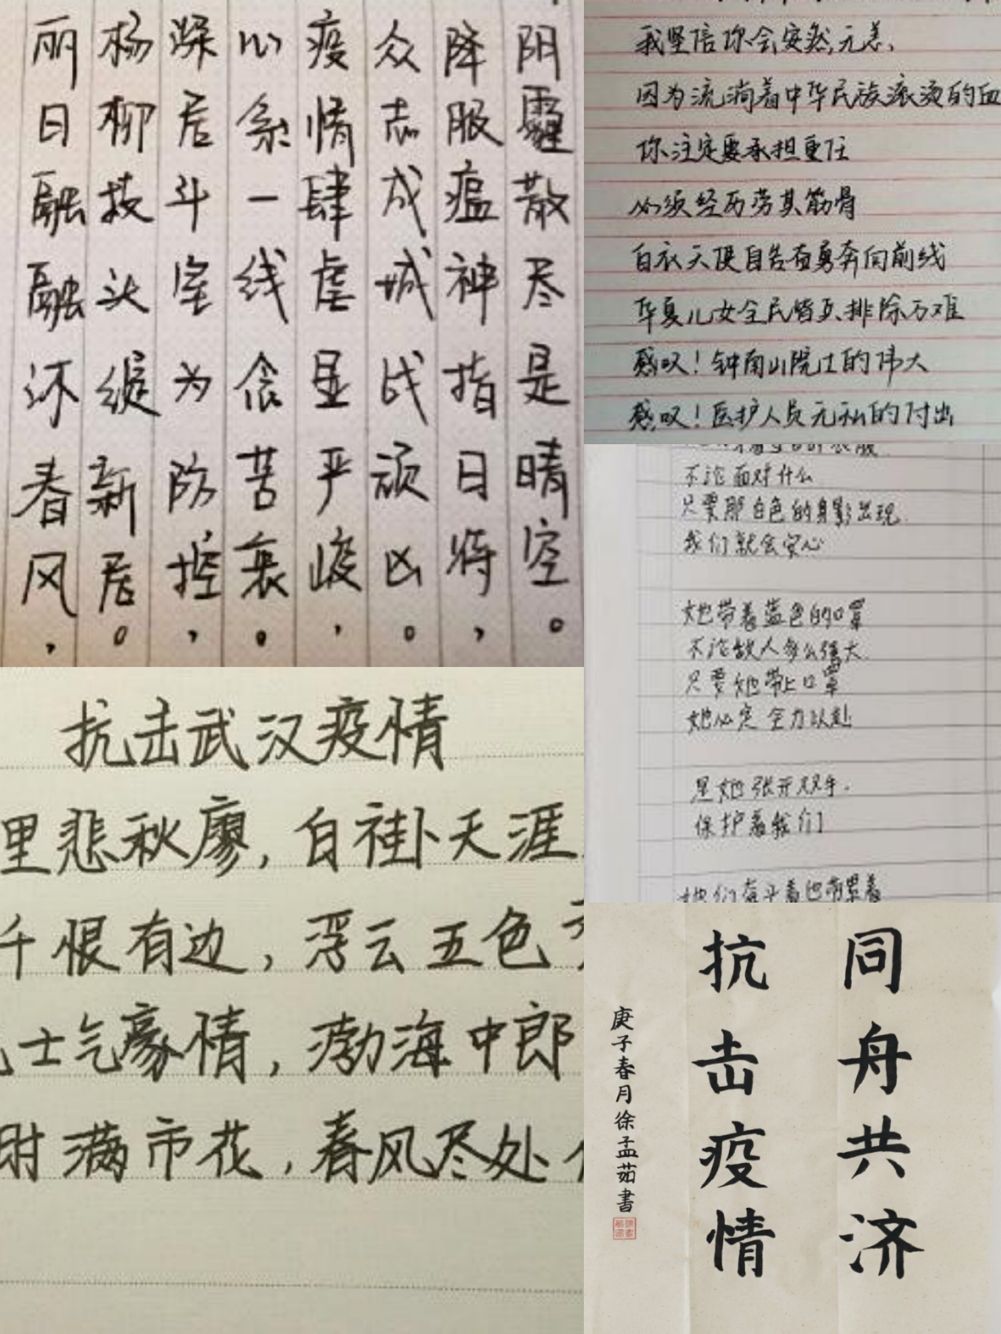 丽日融融沐春风，
杨柳枝头绽新居。
躁居斗室为防控，
心系一线念苦衷。
疫情肆虐显严峻，
众志成城战顽凶。
降服瘟神指日待，
阴霾散尽是晴空。
我坚信你会安然无恙，
因为流淌着中华民族滚烫的血
你注定要承担重任
必须经历劳其筋骨
白衣天使自告奋勇奔向前线
华夏儿女全民皆兵排除万难
感叹！钟南山院士的伟大
感叹！医护人员无私的付出
不论面对什么
只要那白色的身影出现
我们就会安心
她带着蓝色的口罩
不论敌人多么强大
只要她带上口罩
她必定全力以赴
是她张开双手，
保护着我们
她们奋斗着也劳累着
抗击武汉疫情
里悲秋廖，白褂天涯
千恨有边，浮云五色
士气豪情，渤海中郎
时满市花，春风尽处
同舟共济
抗击疫情
庚子春月徐孟茹書